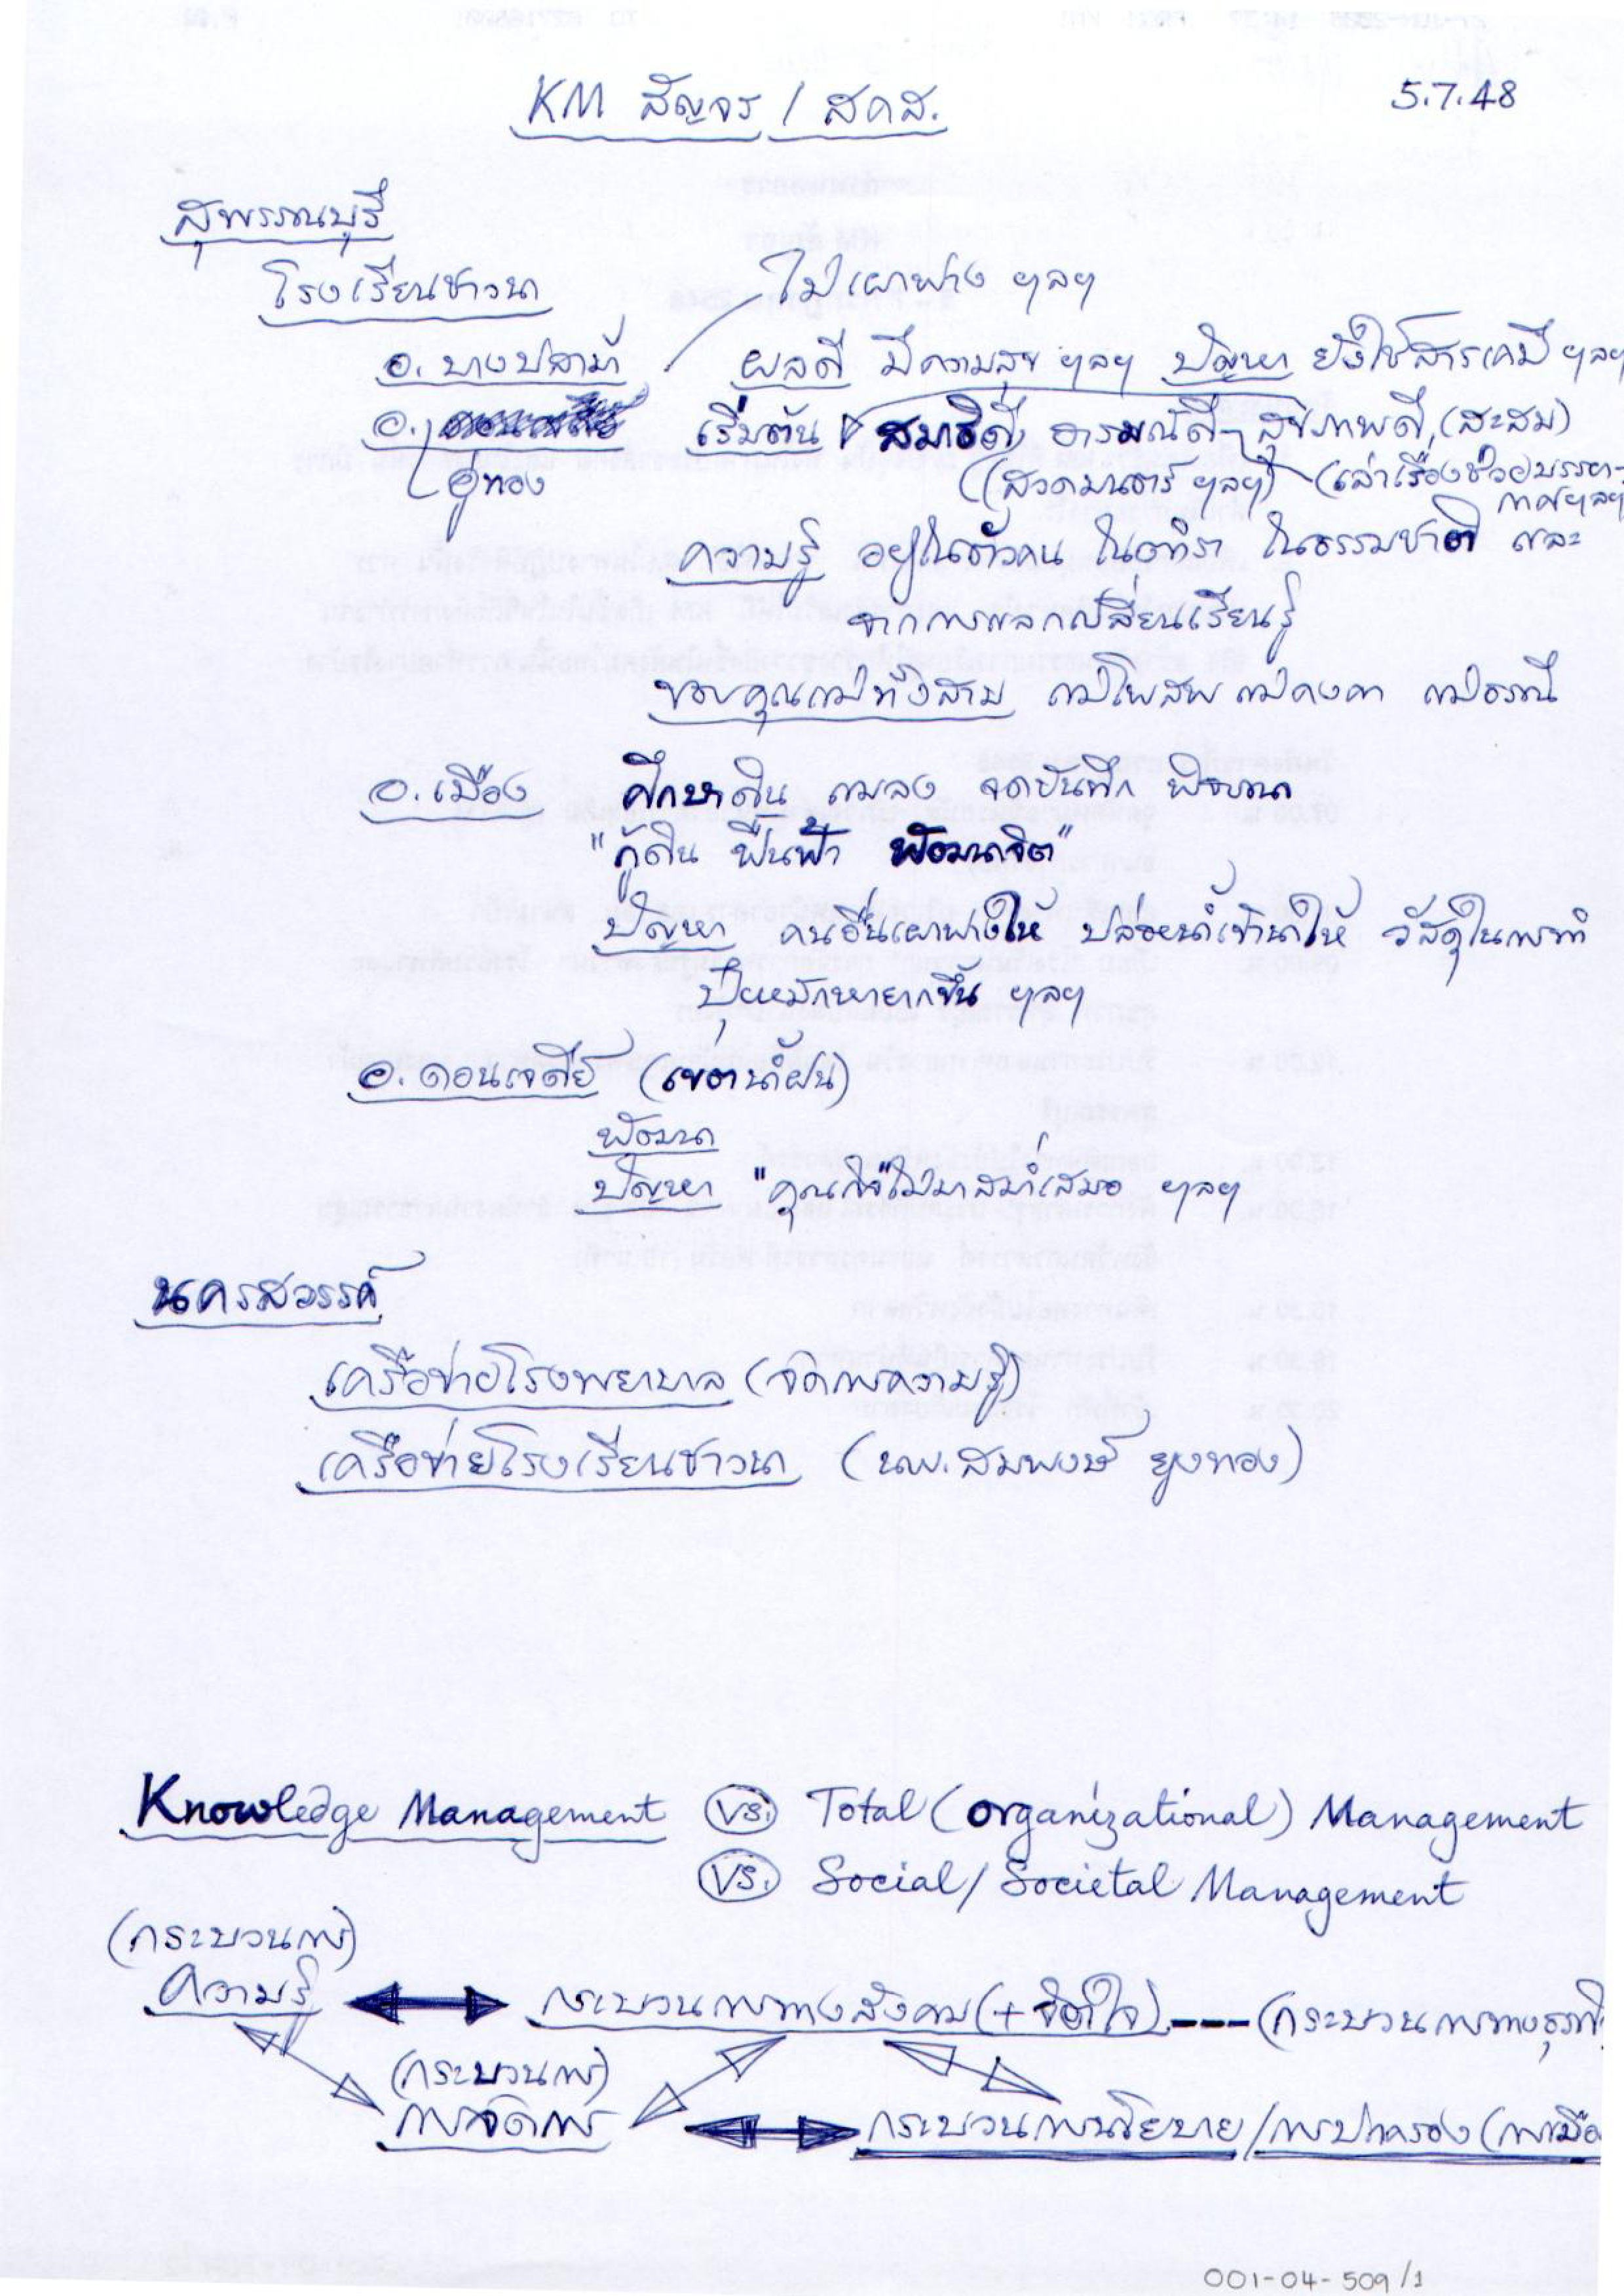 KM สัญจร / สคส.
5.7.48
สุพรรณบุรี
โรงเรียนชาวนา
ไม่เผาฟาง ฯลฯ
อ. บางปลาม้า
ผลดี มีความสุข ฯลฯ ปัญหา ยังใช้สารเคมี ฯลฯ
อ. อู่ทอง
เริ่มต้น สมาธิดี อารมณ์ดี สุขภาพดี (สะสม)
(สวดมนตร์ ฯลฯ) (เล่าเรื่องช่วยบรรยา-
กาศฯลฯ
ความรู้ อยู่ในตัวคน ในตำรา ในธรรมชาติ และ
จากการแลกเปลี่ยนเรียนรู้
ขอบคุณแม่ทั้งสาม แม่โพสพ แม่คงคา แม่ธรณี
อ. เมือง ศึกษาดิน แมลง จดบันทึก พัฒนา
"กู้ดิน ฟื้นฟ้า พัฒนาจิต"
ปัญหา คนอื่นเผาฟางให้ ปล่อยน้ำเข้านาให้ วัสดุในการทำ
ปุ๋ยหมักหายากขึ้น ฯลฯ
อ. ดอนเจดีย์ (เขตน้ำฝน)
พัฒนา
ปัญหา "คุณกิจ" ไม่มาสม่ำเสมอ ฯลฯ
นครสวรรค์
เครือข่ายโรงพยาบาล (จัดการความรู้)
เครือข่ายโรงเรียนชาวนา (นพ. สมพงษ์ ยูงทอง)
Knowledge Management VS. Total (organizational) Management
VS. Social / Societal Management
(กระบวนการ)
ความรู้ กระบวนการทางสังคม (+ จิตใจ) --- (กระบวนการทางธุรกิ
(กระบวนการ)
การจัดการ กระบวนการนโยบาย / การปกครอง (การเมือ
001-04-509/1